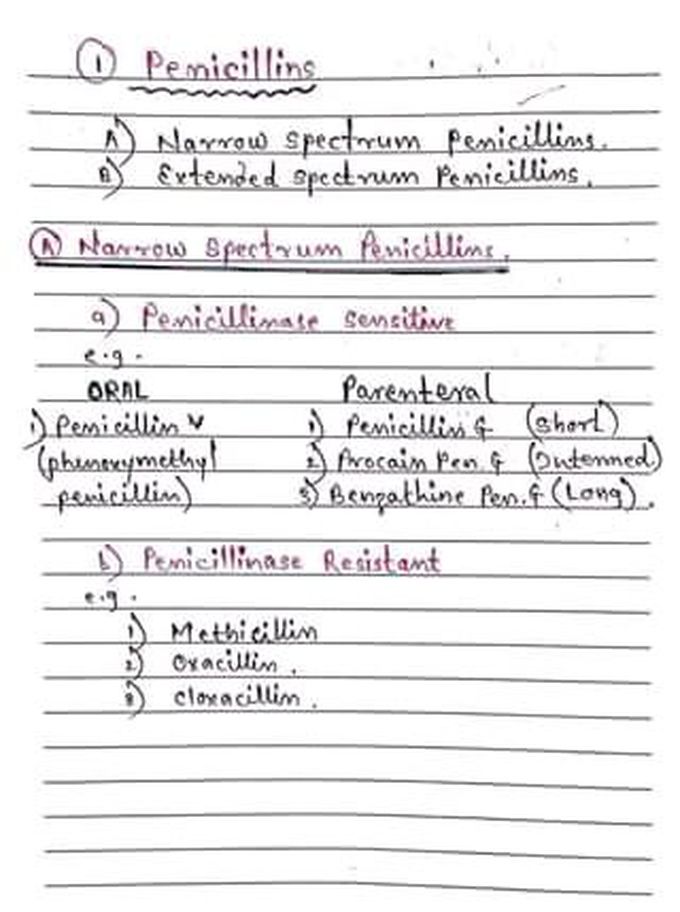 ① Penicillins
A) Narrow spectrum Penicillins.
B) Extended spectrum Penicillins.
Ⓐ Narrow spectrum Penicillins.
a) Penicillinase sensitive
e.g.
ORAL Parenteral
1) Penicillin V 1) Penicillin G (short)
(phenoxymethyl 2) Procain Pen. G (Intermed)
penicillin) 3) Benzathine Pen. G (Long).
b) Penicillinase Resistant
e.g.
1) Methicillin
2) Oxacillin.
3) Cloxacillin.